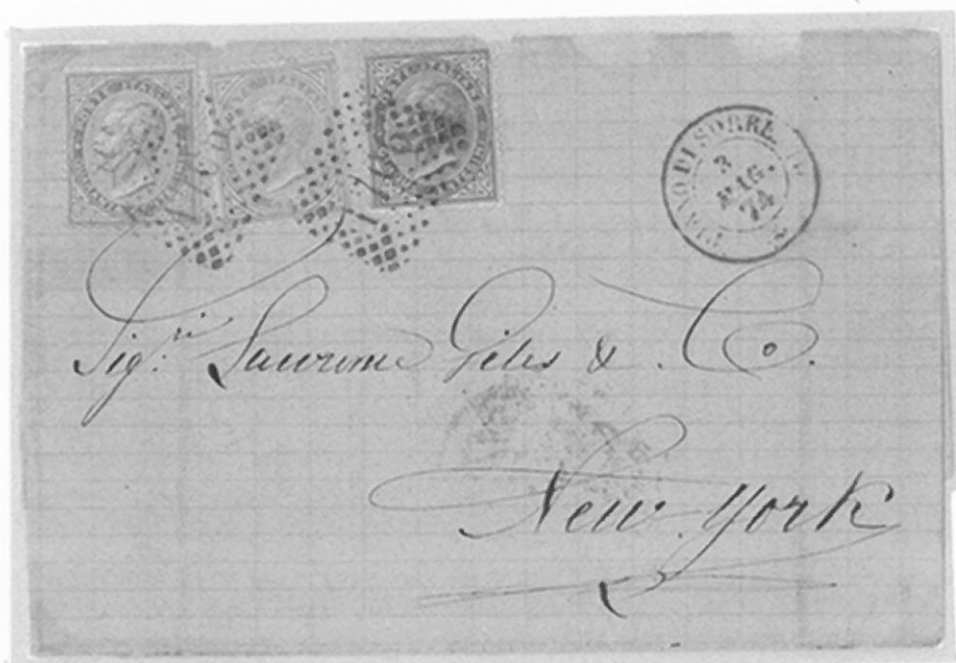 PIANO DI SORRE
3
MAG.
74
Sig.ri Lawrence Giles & Co.
New York